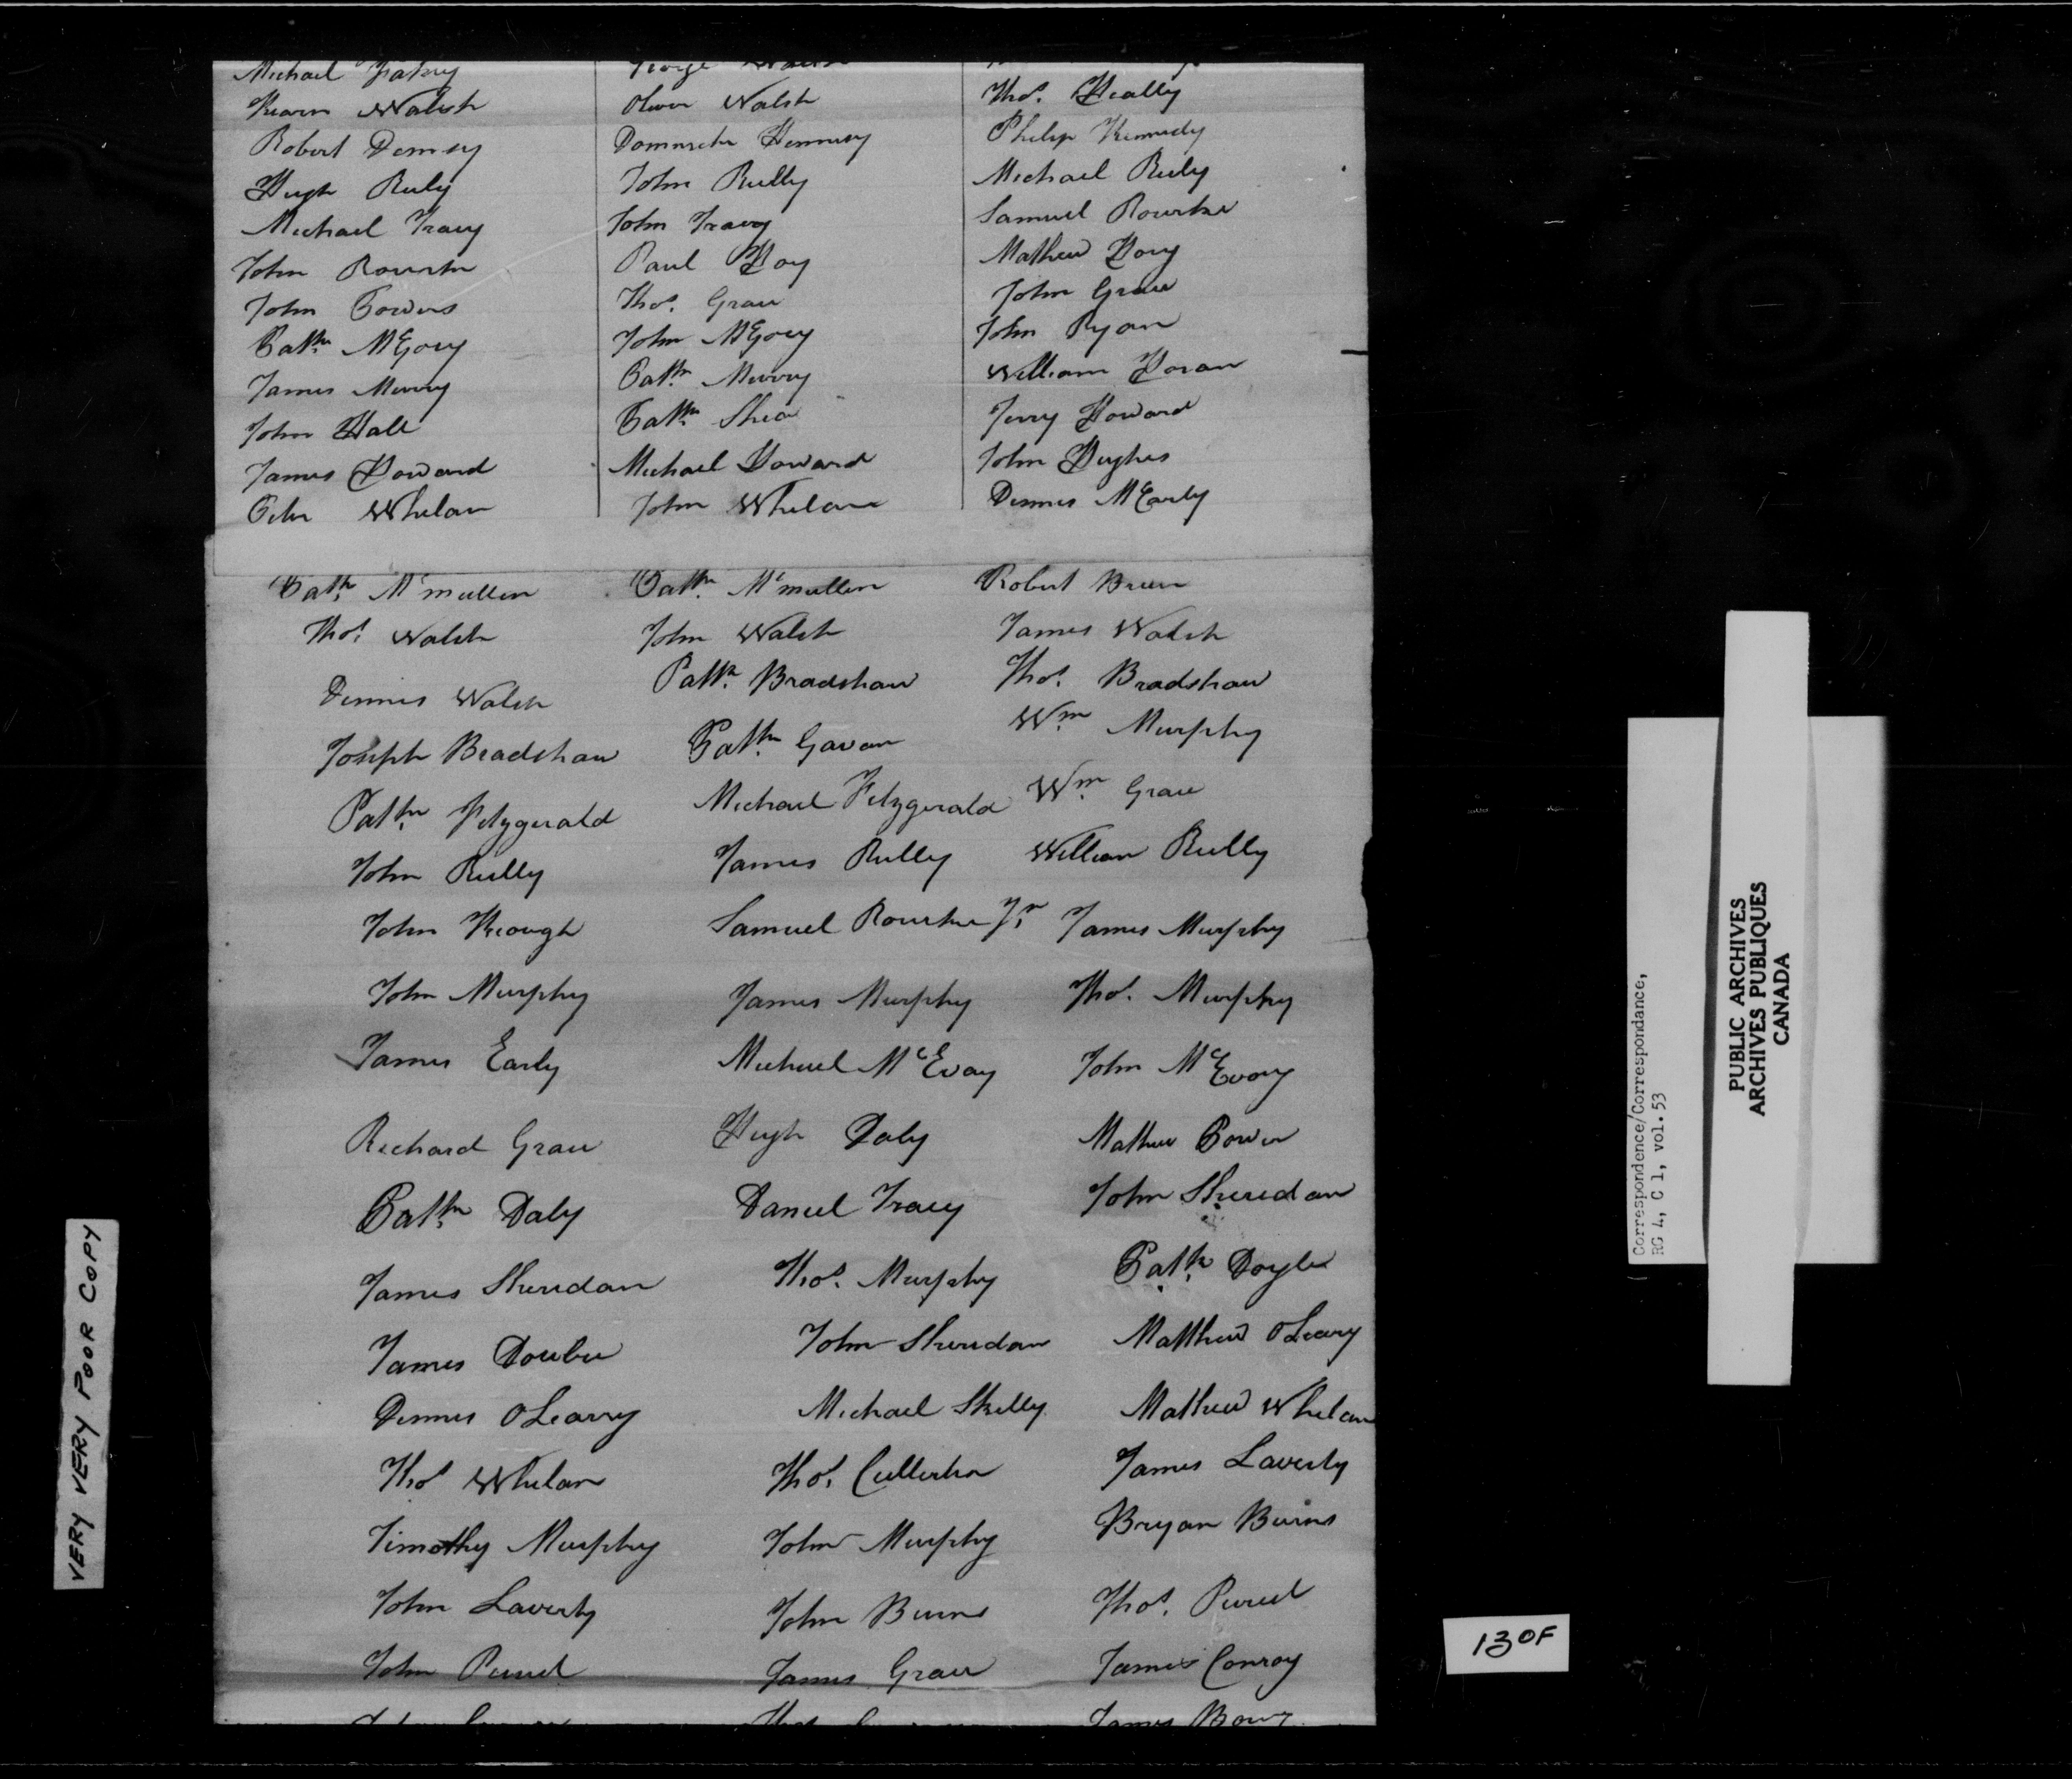 Michael
Kearn Walsh
Robert Demsey
Hugh Rely
Michael Tracy
John Rourke
John Powers
Patk. McGory
James Murry
John Hall
James Howard
Peter Whelan
George Walsh
Oliver Walsh
Domnick Hennesy
John Reilly
John Tracy
Paul Hoy
Thos. Grace
John McGory
Patk. Murry
Patk. Shea
Michael Howard
John Whelan
Thos. Heally
Philip Kennedy
Michael Riely
Samuel Rourke
Mathew Hoey
John Grace
John Ryan
William Horan
Jerry Howard
John Hughes
Dennis McEarly
Patk. McMullen Patk. McMullen Robert Breen
Thos. Walsh John Walsh James Walsh
Dennis Walsh Patk. Bradshaw Thos. Bradshaw
Joseph Bradshaw Patk. Gavan Wm. Murphy
Patk. Fitzgerald Michael Fitzgerald Wm. Grace
John Reilly James Reilly William Reilly
John Keough Samuel Rourke Jr. James Murphy
John Murphy James Murphy Thos. Murphy
James Early Michael McEvoy John McEvoy
Richard Grace Hugh Daly Mathew Power
Patk. Daly Daniel Tracy John Sheridan
James Sheridan Thos. Murphy Patk. Doyle
James John Sheridan Matthew OLeary
Dennis OLearry Michael Skelly Mathew Whelan
Thos Whelan Thos. Cullerton James Laverty
Timothy Murphy John Murphy Bryan Burns
John Laverty John Burns Thos. Purcel
John Purcel James Grace James Conroy
James
VERY VERY POOR COPY
Correspondence/Correspondance,
RG 4, C 1, vol.53
PUBLIC ARCHIVES
ARCHIVES PUBLIQUES
CANADA
130F